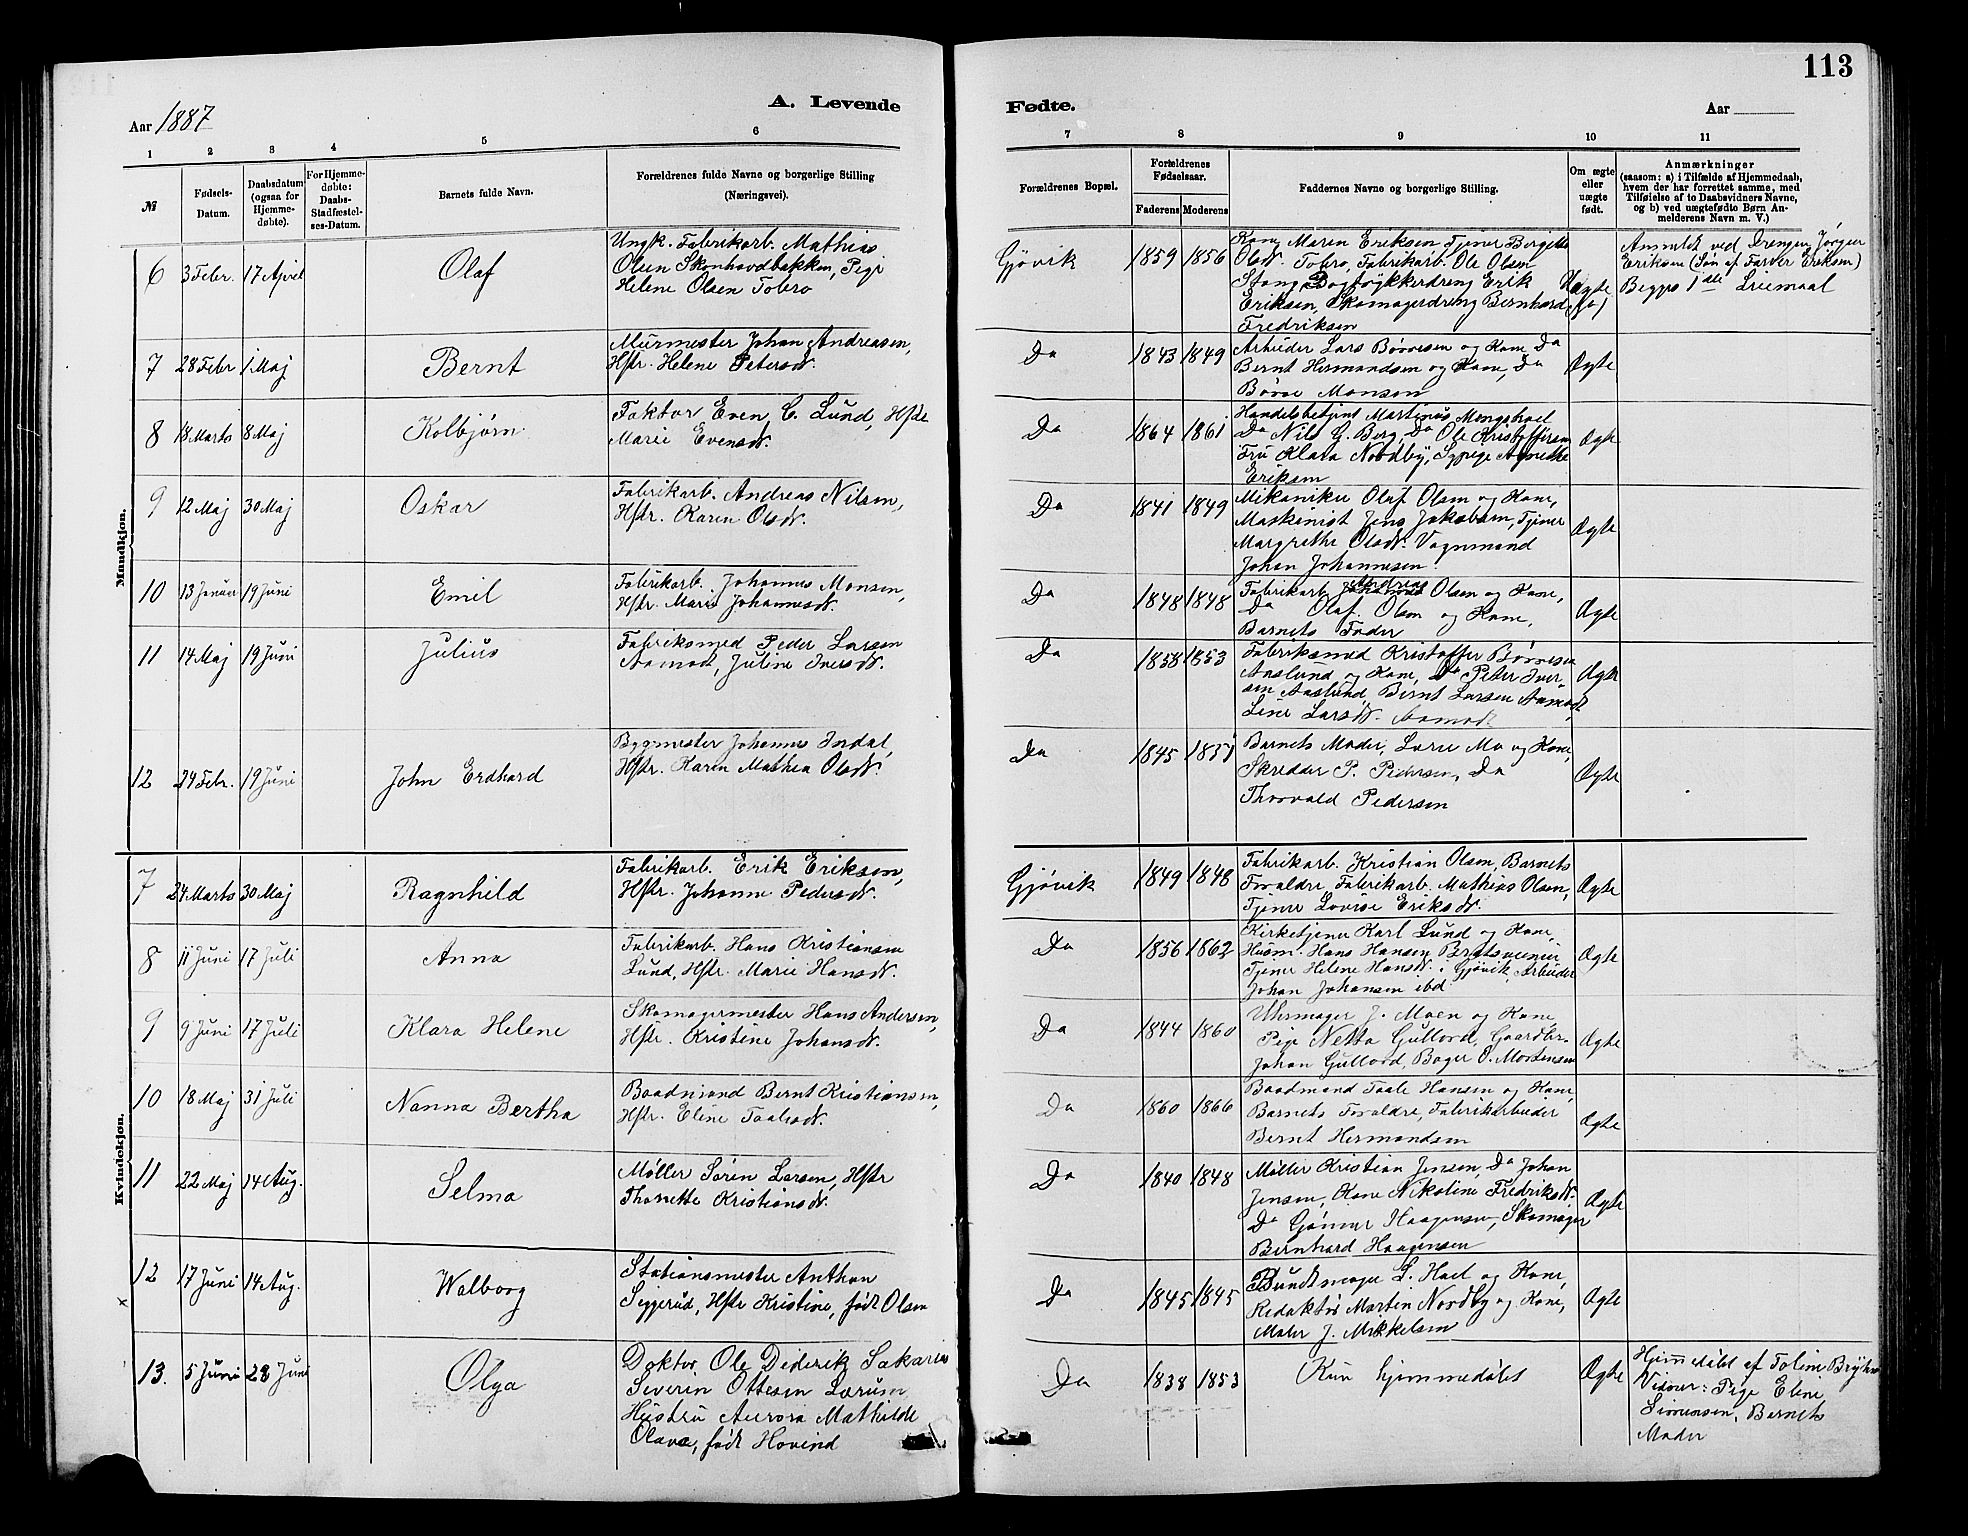 113
A. Levende
Fødte.
Aar 1887
Aar
1 2 3 4 5 6 7 8 9 10 11
№
Fødsels-
Datum.
Daabsdatum
(ogsaa for
Hjemme-
døbte).
For Hjemme-
døbte:
Daabs-
Stadfæstel-
ses-Datum.
Barnets fulde Navn.
Forældrenes fulde Navne og borgerlige Stilling
(Næringsvei).
Forældrenes Bopæl.
Forældrenes
Fødselsaar.
Faderens Moderens
Faddernes Navne og borgerlige Stilling.
Om ægte
eller
uægte
født.
Anmærkninger
(saasom: a) i Tilfælde af Hjemmedaab,
hvem der har forrettet samme, med
Tilføielse af to Daabsvidners Navne,
og b) ved uægtefødte Børn An-
melderens Navn m. V.)
Mandkjøn.
6 3 Febr. 17 April Olaf
Ungk. Fabrikarb. Mathias
Olsen Skonhovdbakken, Pige
Helene Olsen Tobro
Gjøvik 1859 1856
Kone Maren Eriksen Tjener Birgitte
Olsdt. Tobro, Fabrikarb. Ole Olsen
Stang, Erik
Eriksen, Skomagerdreng Bernhard
Fredriksen
Uægte
Anmeldt ved Drengen Jørgen
Eriksen (Søn af Farver Eriksen)
Begges 1ste Leiermaal
7 28 Febr 1 Maj Bernt
Murmester Johan Andreasen,
Hstr. Helene Petersdt.
Da 1843 1849
Arbeider Lars Børresen og Kone Da
Bernt Hermandsen og Kone, Da
Børre Monsen
Ægte
8 18 Marts 8 Maj Kolbjørn
Faktor Even C. Lund, Hstr
Marie Evensdt.
Da 1864 1861
Handelsbetjent Martinus Mengshoel
Da Nils G. Berg, Da Ole Kristoffersen
Fru Klara Nordby, Sypige Agnethe
Eriksen
Ægte
9 12 Maj 30 Maj Oskar
Fabrikarb. Andreas Nilsen,
Hstr. Karen Olsdt.
Da 1841 1849
Mekaniker Olaf Olsen og Kone,
Maskinist Jens Jakobsen, Tjener
Margrethe Olsdt. Vognmand
Johan Johannesen
Ægte
10 13 Januar 19 Juni Emil
Fabrikarb. Johannes Monsen,
Hstr. Marie Johannesdt.
Da 1848 1848
Fabrikarb. Andreas Olsen og Kone,
Da Olaf Olsen og Kone,
Barnets Fader
Ægte
11 14 Maj 19 Juni Julius
Fabriksmed Peder Larsen
Aamodt, Juline Iversdt.
Da 1858 1853
Fabriksmed Kristoffer Børresen
Aaslund og Kone, Da Peter Iver-
sen Aaslund, Bernt Larsen Aamodt,
Line Larsdt. Aamodt
Ægte
12 24 Febr. 19 Juni John Erdhard
Bygmester Johannes Indal,
Hstr. Karen Mathea Olsdt.
Da 1845 1851
Barnets Moder, Lærer Mo og Kone,
Skredder P. Pedersen, Da
Thorvald Pedersen
Ægte
Kvindekjøn.
7 24 Marts 30 Maj Ragnhild
Fabrikarb. Erik Eriksen,
Hstr. Johanne Pedersdt.
Gjøvik 1849 1848
Fabrikarb. Kristian Olsen, Barnets
Forældre, Fabrikarb. Mathias Olsen,
Tjener Lovise Eriksdt.
Ægte
8 11 Juni 17 Juli Anna
Fabrikarb. Hans Kristiansen
Lund, Hstr. Marie Hansdt.
Da 1856 1862
Kirketjener Karl Lund og Kone,
Husm. Hans Hansen
Tjener Helene Hansdt. i Gjøvik, Arbeider
Johan Johansen ibd
Ægte
9 9 Juni 17 Juli Klara Helene
Skomagermester Hans Andersen,
Hstr. Kristine Johansdt.
Da 1844 1860
Uhrmager J. Moen og Kone
Pige Netta Gullord, Gaardbr.
Johan Gullord, Bager O. Mortensen
Ægte
10 18 Maj 31 Juli Nanna Bertha
Baadmand Bernt Kristiansen,
Hstr. Eline Taalesdt.
Da 1860 1866
Baadmand Taale Hansen og Kone,
Barnets Forældre, Fabrikarbeider
Bernt Hermandsen
Ægte
11 22 Maj 14 Aug. Selma
Møller Søren Larsen, Hstr
Thonette Kristiansdt.
Da 1840 1848
Møller Kristian Jensen, Da Johan
Jensen, Kone Nikoline Fredriksdt.
Da Haagensen, Skomager
Bernhard Haagensen
Ægte
12 17 Juni 14 Aug. Walborg
x
Stationsmester Anthon
Seggerud, Hstr Kristine, født Olsen
Da 1845 1845
Bundtmager L. Hoel og Kone,
Redaktør Martin Nordby og Kone,
Maler J. Mikkelsen
Ægte
13. 5 Juni 28 Juni Olga
Doktor Ole Diderik Sakarias
Severin Ottesen Lærum
Hustru Aurora Mathilde
Olava, født Hovind
Da 1838 1853
Kun hjemmedøbt
Ægte
Hjemmedøbt af
Vidner: Pige Eline
Simensen, Barnets
Moder